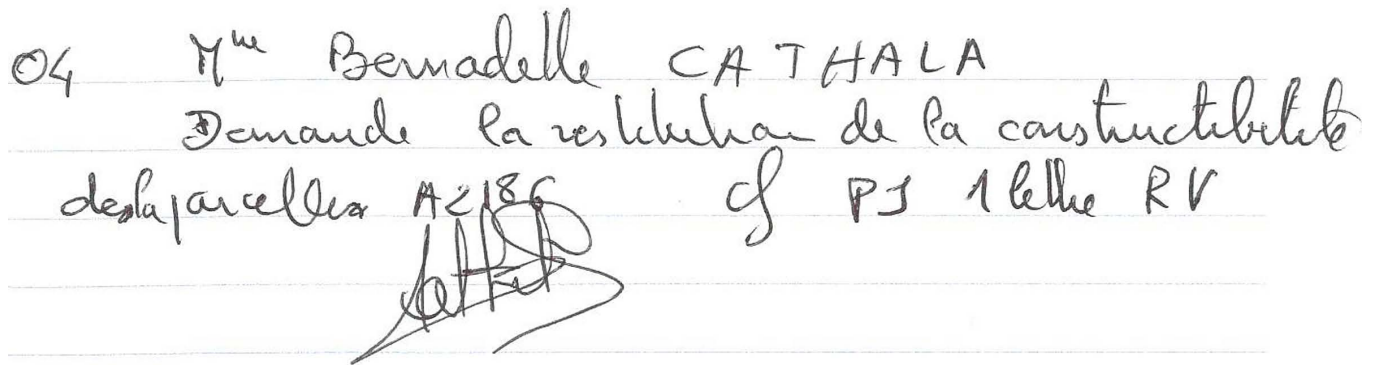 04 Mme Bernadette CATHALA
Demande la restitution de la constructibilité
de la parcelle A2186 cf PJ 1 lettre RV